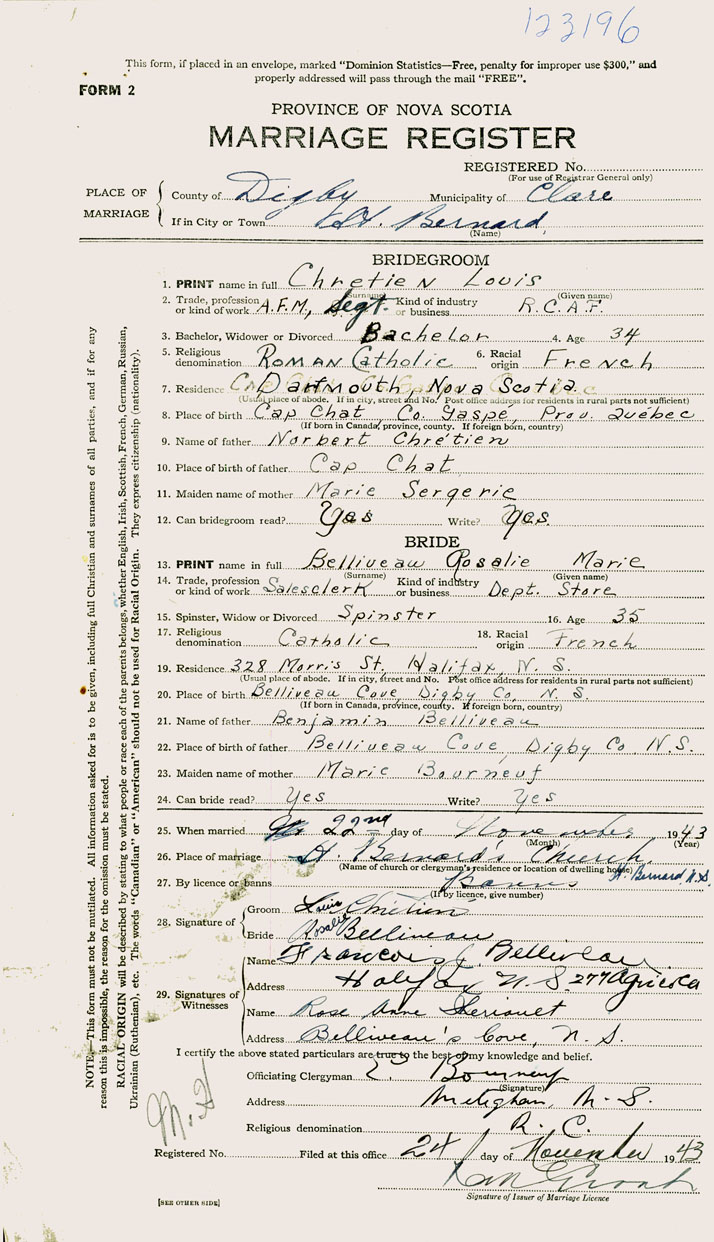 123196
This form, if placed in an envelope, marked "Dominion Statistics—Free, penalty for improper use $300," and
properly addressed will pass through the mail "FREE".
FORM 2
PROVINCE OF NOVA SCOTIA
MARRIAGE REGISTER
REGISTERED No.
(For use of Registrar General only)
PLACE OF MARRIAGE
County of Digby Municipality of Clare
If in City or Town St. Bernard,
(Name)
BRIDEGROOM
1. PRINT name in full Chretien Louis
(Surname) (Given name)
2. Trade, profession or kind of work A.F.M., Segt. Kind of industry or business R.C.A.F.
3. Bachelor, Widower or Divorced Bachelor 4. Age 34
5. Religious denomination Roman Catholic 6. Racial origin French
7. Residence Dartmouth, Nova Scotia
(Usual place of abode. If in city, street and No. Post office address for residents in rural parts not sufficient)
8. Place of birth Cap Chat, Co. Gaspé, Prov. Québec
(If born in Canada, province, county. If foreign born, country)
9. Name of father Norbert Chrétien
10. Place of birth of father Cap Chat
11. Maiden name of mother Marie Sergerie
12. Can bridegroom read? Yes Write? Yes.
BRIDE
13. PRINT name in full Belliveau Rosalie Marie
(Surname) (Given name)
14. Trade, profession or kind of work Salesclerk Kind of industry or business Dept. Store
15. Spinster, Widow or Divorced Spinster 16. Age 35
17. Religious denomination Catholic 18. Racial origin French
19. Residence 328 Morris St. Halifax, N. S.
(Usual place of abode. If in city, street and No. Post office address for residents in rural parts not sufficient)
20. Place of birth Belliveau Cove, Digby Co, N. S.
(If born in Canada, province, county. If foreign born, country)
21. Name of father Benjamin Belliveau
22. Place of birth of father Belliveau Cove, Digby Co. N.S.
23. Maiden name of mother Marie Bourneuf
24. Can bride read? Yes Write? Yes
25. When married 22nd day of November 1943
(Month) (Year)
26. Place of marriage St. Bernard's Church, St. Bernard, N.S.
(Name of church or clergyman's residence or location of dwelling house)
27. By licence or banns Banns
(If by licence, give number)
28. Signature of
Groom Louis Chretien
Bride Rosalie Belliveau
29. Signatures of Witnesses
Name Francois J. Belliveau
Address Halifax N. S. 277 Agricola
Name Rose Anne Theriault
Address Belliveau's Cove, N. S.
I certify the above stated particulars are true to the best of my knowledge and belief.
Officiating Clergyman Bourneuf
(Signature)
Address Meteghan, N. S.
Religious denomination R. C.
Registered No. Filed at this office 24 day of November 1943
Signature of Issuer of Marriage Licence
[SEE OTHER SIDE]
NOTE.—This form must not be mutilated. All information asked for is to be given, including full Christian and surnames of all parties, and if for any
reason this is impossible, the reason for the omission must be stated.
RACIAL ORIGIN will be described by stating to what people or race each of the parents belongs, whether English, Irish, Scottish, French, German, Russian,
Ukrainian (Ruthenian), etc. The words "Canadian" or "American" should not be used for Racial Origin. They express citizenship (nationality).